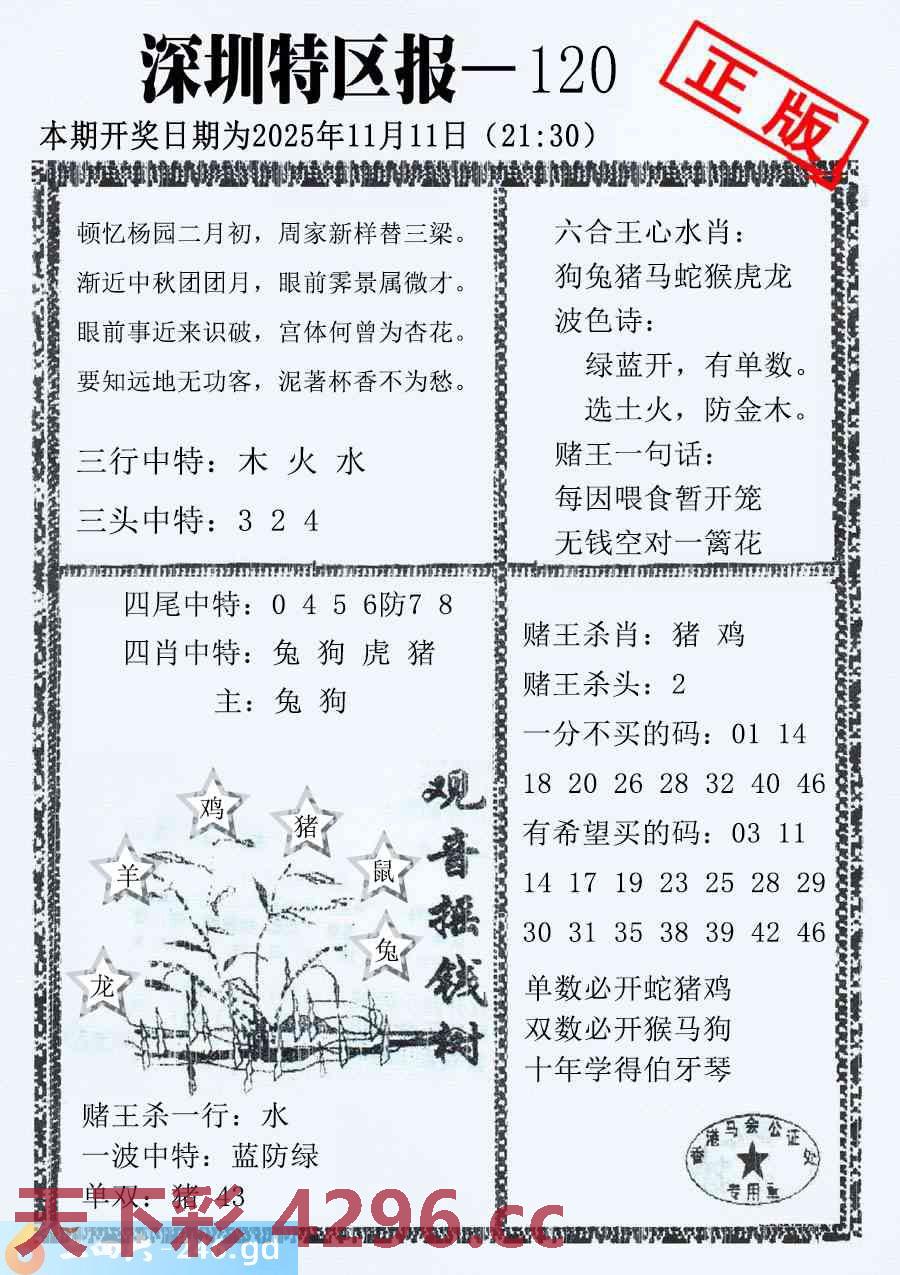 深圳特区报—120
正版
本期开奖日期为2025年11月11日（21:30）
顿忆杨园二月初，周家新样替三梁。
渐近中秋团团月，眼前霁景属微才。
眼前事近来识破，宫体何曾为杏花。
要知远地无功客，泥著杯香不为愁。
三行中特：木 火 水
三头中特：3 2 4
六合王心水肖：
狗兔猪马蛇猴虎龙
波色诗：
绿蓝开，有单数。
选土火，防金木。
赌王一句话：
每因喂食暂开笼
无钱空对一篱花
四尾中特：0 4 5 6防7 8
四肖中特：兔 狗 虎 猪
主：兔 狗
鸡
猪
羊
鼠
兔
龙
观音摇钱树
赌王杀一行：水
一波中特：蓝防绿
单双：猪 43
赌王杀肖：猪 鸡
赌王杀头：2
一分不买的码：01 14
18 20 26 28 32 40 46
有希望买的码：03 11
14 17 19 23 25 28 29
30 31 35 38 39 42 46
单数必开蛇猪鸡
双数必开猴马狗
十年学得伯牙琴
香港马会公证处
专用章
天下彩 4296.cc